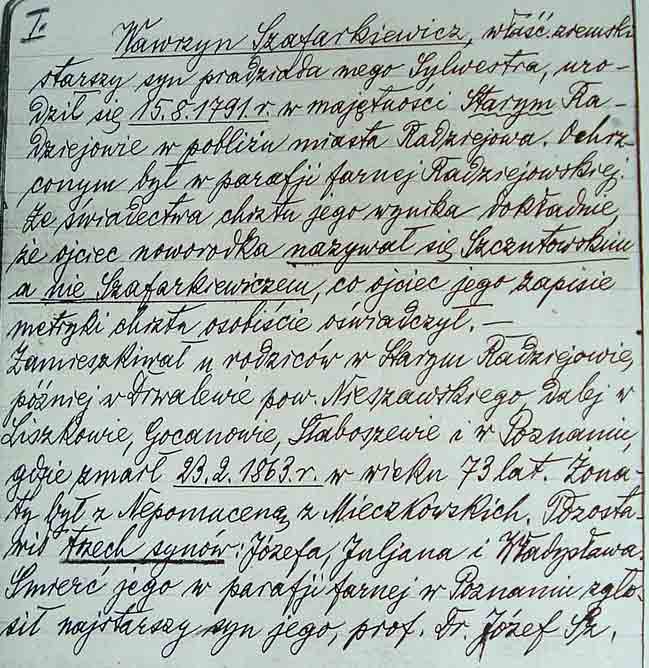 I.
Wawrzyn Szafarkiewicz, właśc. ziemski
starszy syn pradziada mego Sylwestra, uro-
dził się 15.8.1791.r. w majętności Starym Ra-
dziejowie w pobliżu miasta Radziejowa. Ochrz-
conym był w parafji farnej Radziejowskiej.
Ze świadectwa chrztu jego wynika dokładnie,
że ojciec noworodka nazywał się Szczutowskim
a nie Szafarkiewiczem, co ojciec jego zapisie
metryki chrztu osobiście oświadczył. —
Zamieszkiwał u rodziców w Starym Radziejowie,
później w Drwalewie pow. Nieszawskiego, dalej w
Liszkowie, Gocanowie, Staboszewie i w Poznaniu,
gdzie zmarł 23.2.1863.r. w wieku 73 lat. Żona-
ty był z Nepomuceną z Mieczkowskich. Pozosta-
wił trzech synów: Józefa, Juljana i Władysława.
Śmierć jego w parafji farnej w Poznaniu zgło-
sił najstarszy syn jego, prof. Dr. Józef Sz.